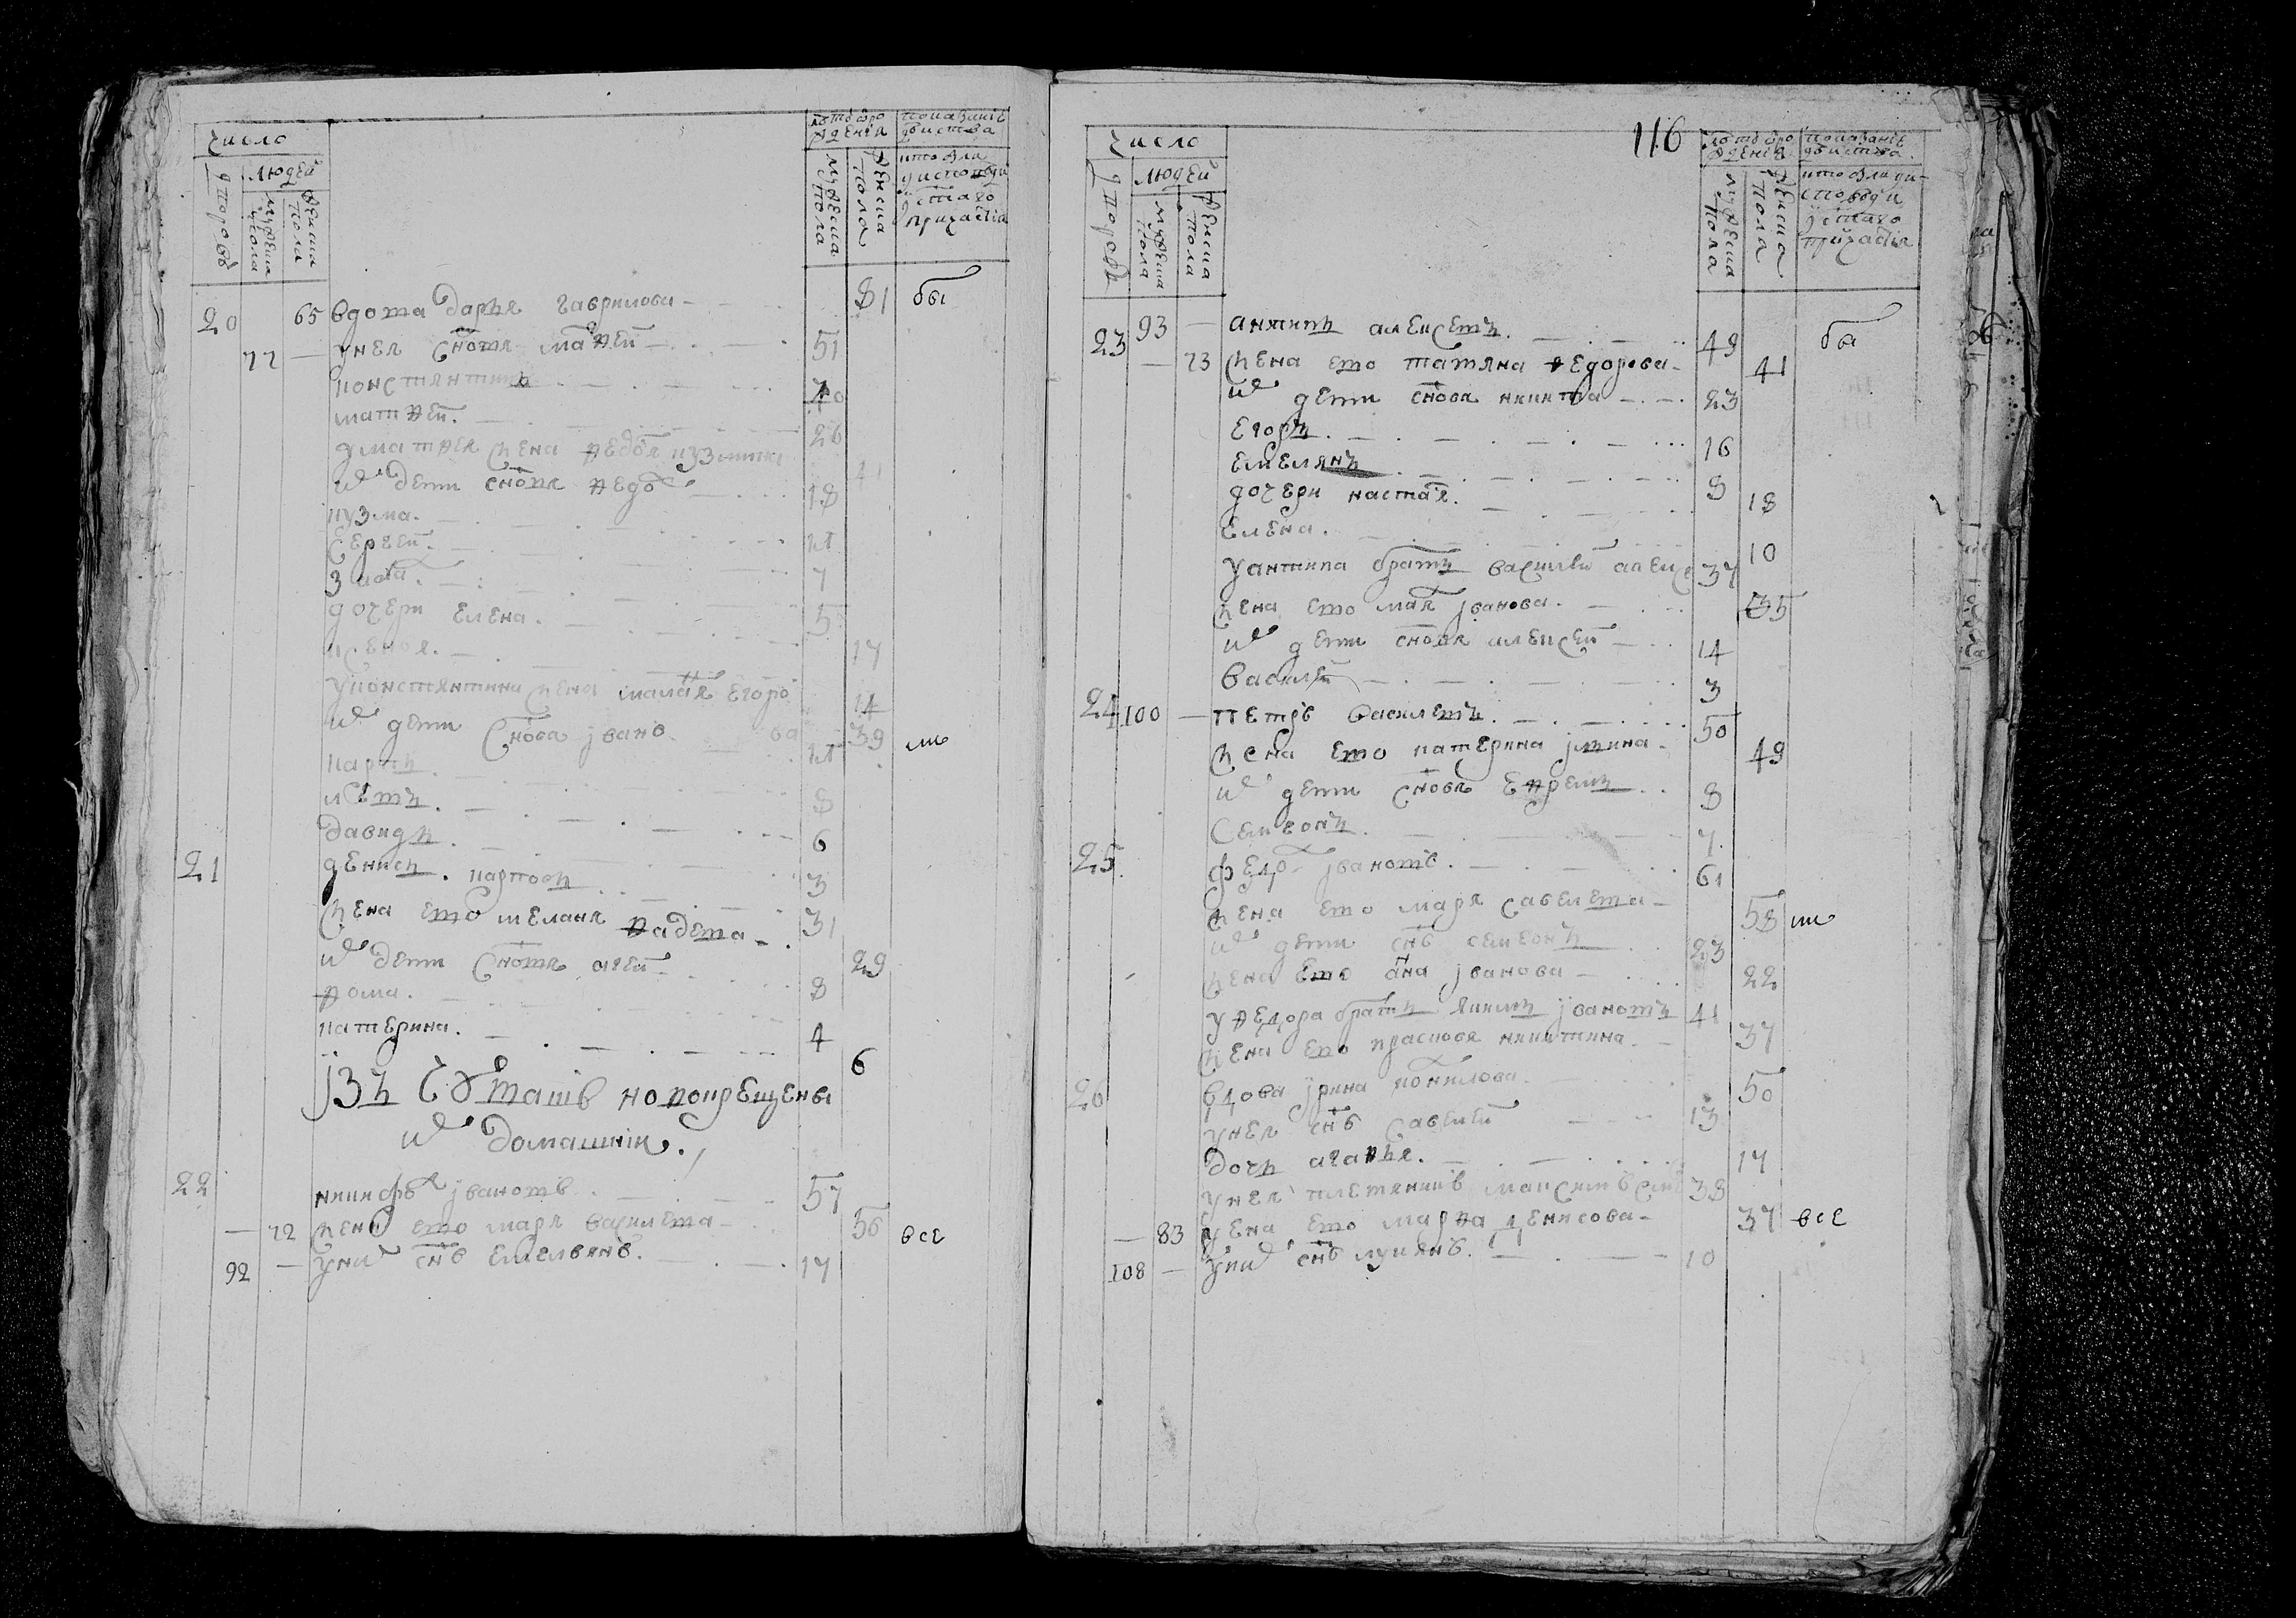 число
людей
дворовъ
мужеска пола
женска пола
лѣтъ от рождения
мужеска пола
женска пола
показание действа
кто был у исповеди и святаго причастия
20 65 вдова дарья гаврилова 81 бы
77 — у нея сновя матвей 51
константинъ 40
матвей 26
у матвея жена федося кузмина 41
их дети сновя федоръ 18
кузма
сергей
7
дочери елена 5
ксеня 17
у константина жена маланя егорова 14
их дети снова иванъ 39
карпъ
8
давидъ 6
21 денисъ карповъ 3
жена ево меланя фадеева 31
их дети сновя агей 29
фома 8
катерина 4
6
изъ новокрещены
их домашнии
22 никифоръ ивановъ 57
— 72 жена ево марья василева 56 все
92 — у них снъ емельянъ 17
116
число
людей
дворовъ
мужеска пола
женска пола
лѣтъ от рождения
мужеска пола
женска пола
показание действа
кто был у исповеди и святаго причастия
23 93 — антипъ алексеевъ 49 бы
— 73 жена ево татяна федорова 41
их дети сновя никита 23
егоръ 16
емелянъ 8
дочери настася 18
елена 10
у антипа братъ василей алексе 37
жена ево маря иванова 35
их дети сновя алексей 14
василей 3
24 100 — петръ василевъ 50
жена ево катерина 49
их дети сновя ефремъ 8
семеонъ 7
25 федоръ ивановъ 61
жена ево маря савелева 58
их дети снъ семеонъ 23
жена ево анна иванова 22
у федора братъ якимъ ивановъ 41
жена ево прасковя никитина 37
26 вдова ирина 50
у нея снъ савелей 13
дочь агафья 17
у нея племянникъ максимъ 38
— 83 жена ево марфа денисова 37 все
108 — у них снъ лукянъ 10